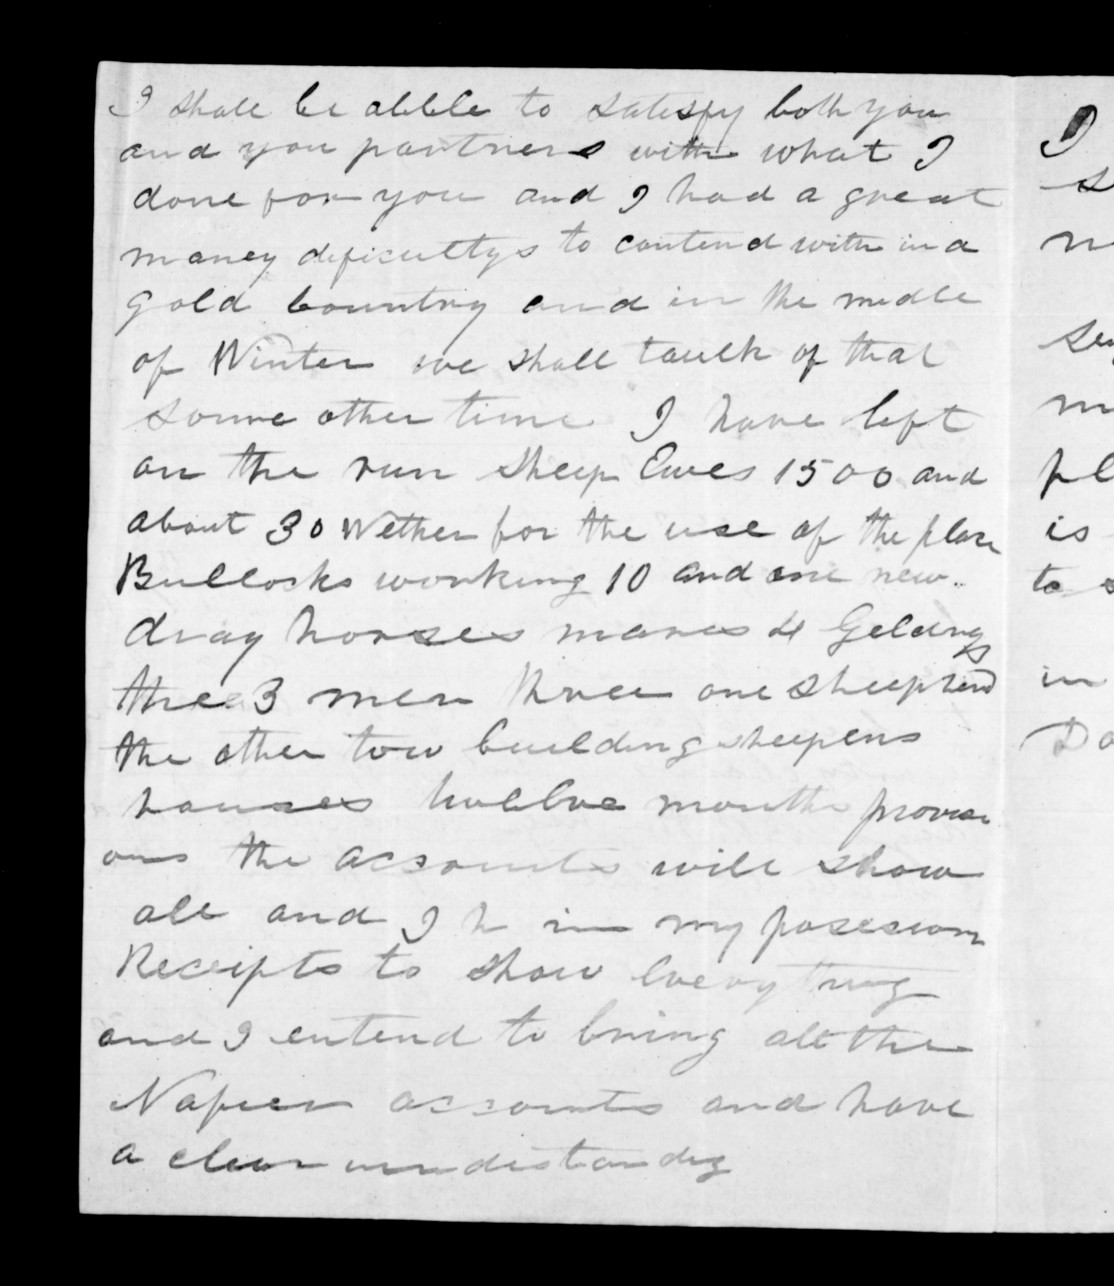 I shall be abble to satesfy both you
and you partners with what I
done for you and I had a great
money deficultys to contend with in a
gold Country and in the midle
of Winter we shall taulk of that
some other time I have left
on the run sheep Ewes 1500 and
about 30 Wether for the use of the place
Bullocks working 10 and one new
dray horses mares 4 Geldings
three 3 men three one sheepherd
the other tow building sheepens
houses twelve months provisi
ons the accounts will show
all and I h in my posesion
Receipts to show Everything
and I entend to bring all the
Napier accounts and have
a clear undistandig
I
s
n
m
pl
is
to s
in
Do